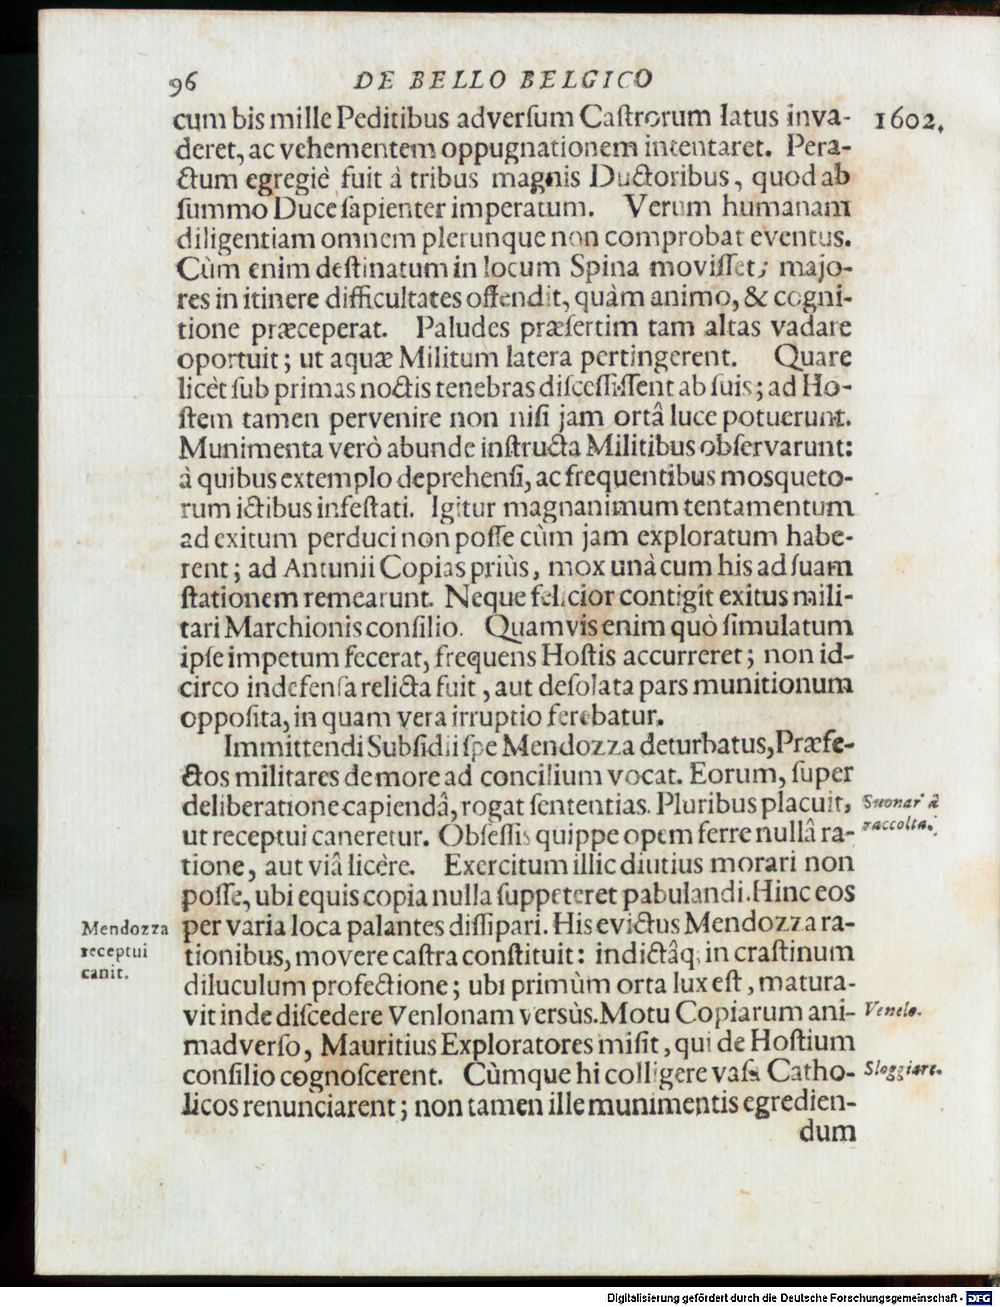 96 DE BELLO BELGICO
cum bis mille Peditibus adverſum Caſtrorum latus inva- 1602.
deret, ac vehementem oppugnationem intentaret. Pera-
ctum egregiè fuit à tribus magnis Ductoribus, quod ab
ſummo Duce ſapienter imperatum. Verum humanam
diligentiam omnem plerunque non comprobat eventus.
Cùm enim deſtinatum in locum Spina moviſſet; majo-
res in itinere difficultates offendit, quàm animo, & cogni-
tione præceperat. Paludes præſertim tam altas vadare
oportuit; ut aquæ Militum latera pertingerent. Quare
licèt ſub primas noctis tenebras diſceſſiſſent ab ſuis; ad Ho-
ſtem tamen pervenire non niſi jam ortâ luce potuerunt.
Munimenta verò abunde inſtructa Militibus obſervarunt:
à quibus extemplo deprehenſi, ac frequentibus mosqueto-
rum ictibus infeſtati. Igitur magnanimum tentamentum
ad exitum perduci non poſſe cùm jam exploratum habe-
rent; ad Antunii Copias priùs, mox unà cum his ad ſuam
ſtationem remearunt. Neque felicior contigit exitus mili-
tari Marchionis conſilio. Quamvis enim quò ſimulatum
ipſe impetum fecerat, frequens Hoſtis accurreret; non id-
circo indefenſa relicta fuit, aut deſolata pars munitionum
oppoſita, in quam vera irruptio ferebatur.
Immittendi Subſidii ſpe Mendozza deturbatus, Præfe-
ctos militares de more ad concilium vocat. Eorum, ſuper
deliberatione capiendâ, rogat ſententias. Pluribus placuit, Suonar à
ut receptui caneretur. Obſeſſis quippe opem ferre nullâ ra- raccolta.
tione, aut viâ licère. Exercitum illic diutius morari non
poſſe, ubi equis copia nulla ſuppeteret pabulandi. Hinc eos
Mendozza per varia loca palantes diſſipari. His evictus Mendozza ra-
receptui tionibus, movere caſtra conſtituit: indictâq; in craſtinum
canit. diluculum profectione; ubi primùm orta lux eſt, matura-
vit inde diſcedere Venlonam versùs. Motu Copiarum ani- Venelo.
madverſo, Mauritius Exploratores miſit, qui de Hoſtium
conſilio cognoſcerent. Cùmque hi colligere vaſa Catho- Sloggiare.
licos renunciarent; non tamen ille munimentis egredien-
dum
Digitalisierung gefördert durch die Deutsche Forschungsgemeinschaft - DFG